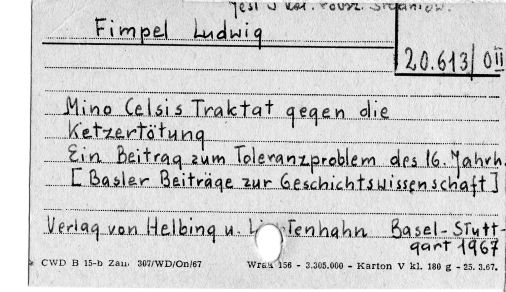 Fimpel Ludwig
20.613/0II
Mino Celsis Traktat gegen die
Ketzertötung
Ein Beitrag zum Toleranzproblem des 16. Jahrh.
[Basler Beiträge zur Geschichtswissenschaft]
Verlag von Helbing u. Lichtenhahn Basel-Stutt-
gart 1967
CWD B 15-b Zam. 307/WD/On/67 156 - 3.305.000 - Karton V kl. 180 g - 25. 3.67.